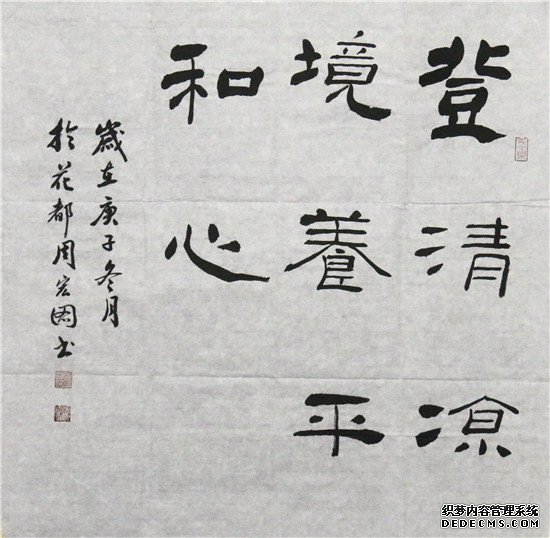 登清凉
境養平
和心
歲在庚子冬月
於花都周宏國書
织梦内容管理系统
DEDECMS.COM